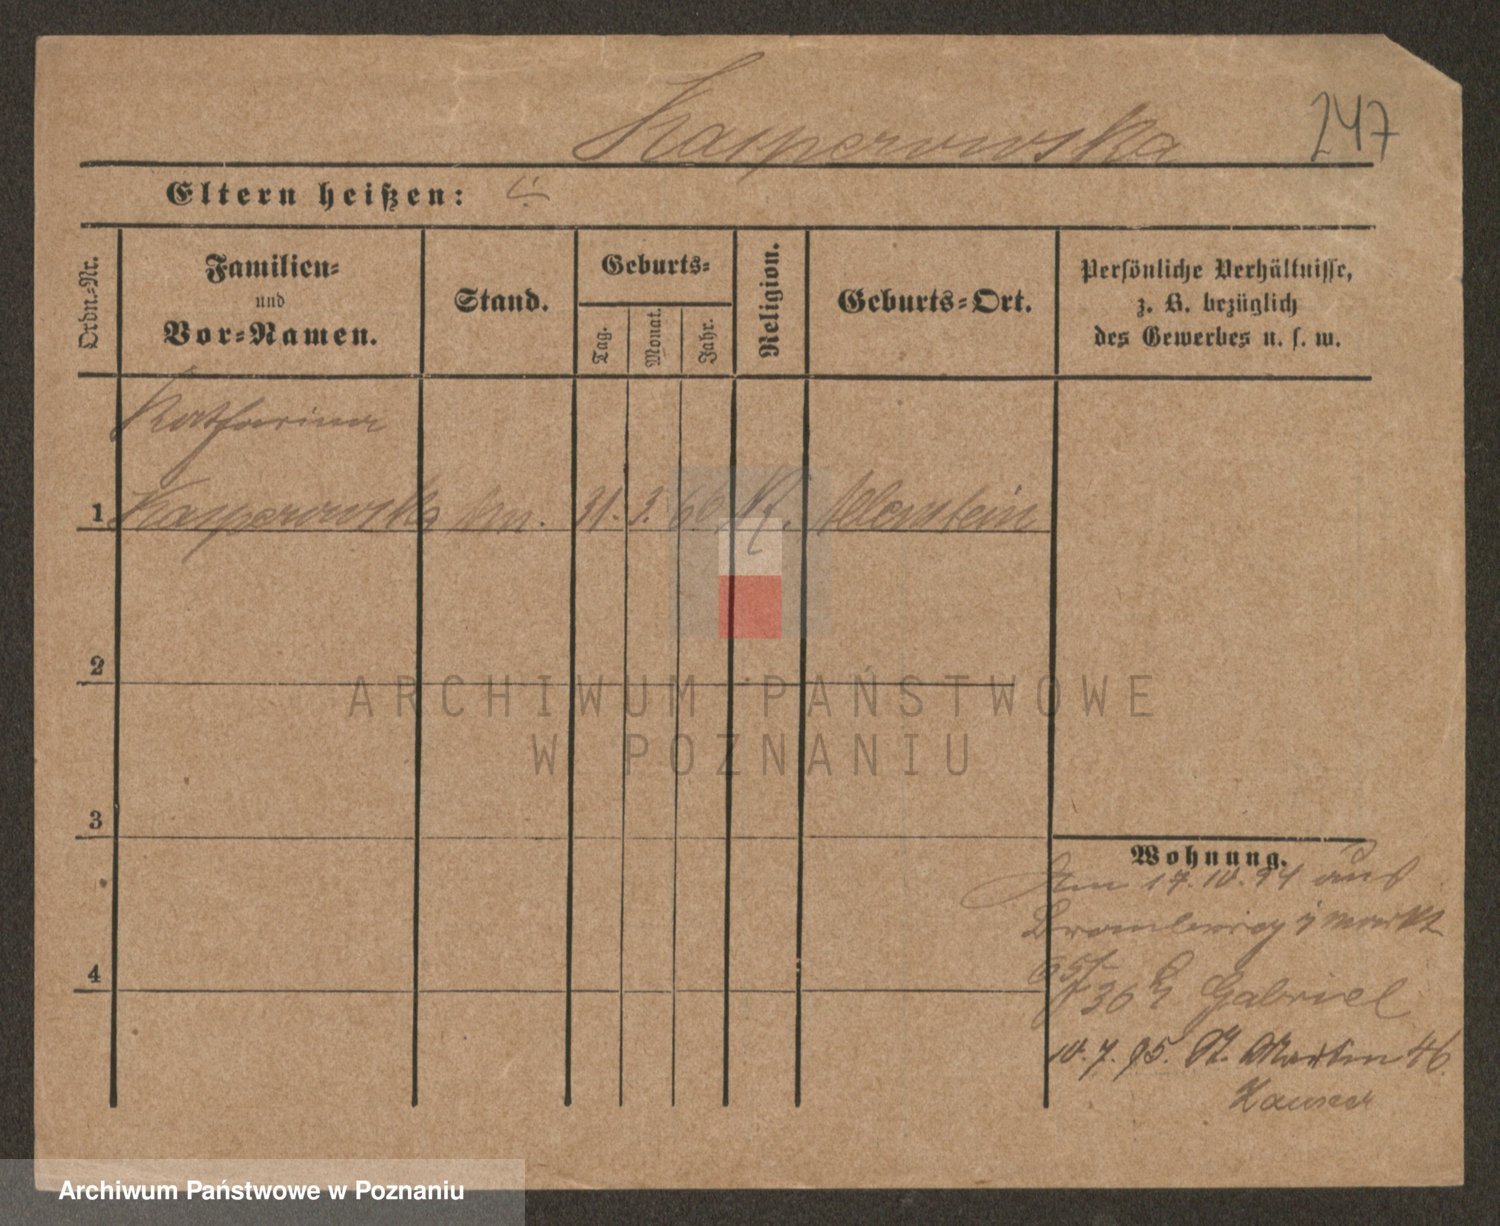 Kasperowska
247
Eltern heißen:
Ordn.-Nr.
Familien-
und
Vor-Namen.
Stand.
Geburts-
Tag.
Monat.
Jahr.
Religion.
Geburts-Ort.
Persönliche Verhältnisse,
z. B. bezüglich
des Gewerbes u. s. w.
Katharina
1 Kasperowska 31. 3. 66 Allenstein
2
3
4
Wohnung.
Am 17.10.94 aus
Bromberg markt
36 Gabriel
10.7.95. St. Martin 46.
ARCHIWUM PAŃSTWOWE
W POZNANIU
Archiwum Państwowe w Poznaniu